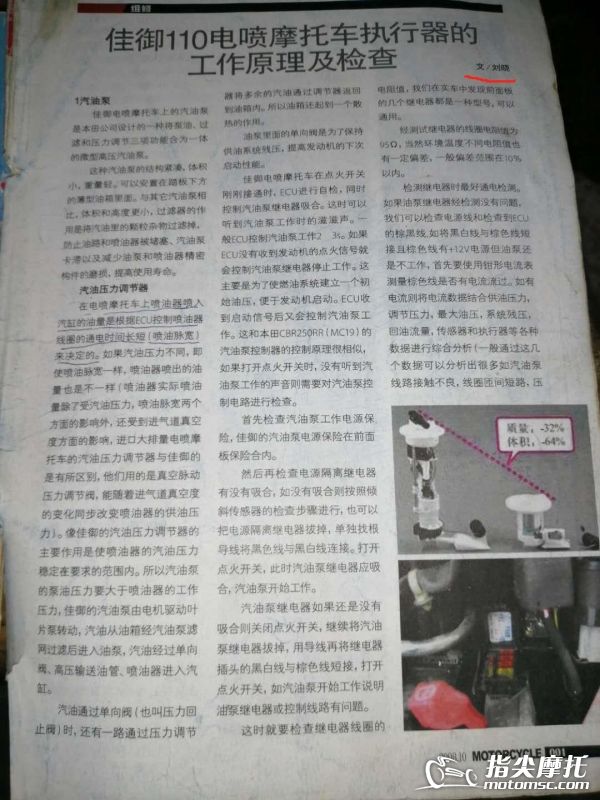 维修
佳御110电喷摩托车执行器的
工作原理及检查
文／刘晓
1汽油泵
佳御电喷摩托车上的汽油泵
是本田公司设计的一种将泵油、过
滤和压力调节三项功能合为一体
的微型高压汽油泵。
这种汽油泵的结构紧凑，体积
小，重量轻。可以安置在踏板下方
的薄型油箱里面。与其它汽油泵相
比，体积和高度更小，过滤器的作
用是将汽油里的颗粒杂物过滤掉，
防止油路和喷油器被堵塞、汽油泵
卡滞以及减少油泵和喷油器精密
构件的磨损，提高使用寿命。
汽油压力调节器
在电喷摩托车上喷油器喷入
汽缸的油量是根据ECU控制喷油器
线圈的通电时间长短（喷油脉宽）
来决定的。如果汽油压力不同，即
使喷油脉宽一样，喷油器喷出的油
量也是不一样（喷油器实际喷油
量除了受汽油压力，喷油脉宽两个
方面的影响外，还受到进气道真空
度方面的影响，进口大排量电喷摩
托车的汽油压力调节器与佳御的
是有所区别，他们用的是真空脉动
压力调节阀，能随着进气道真空度
的变化同步改变喷油器的供油压
力）。像佳御的汽油压力调节器的
主要作用是使喷油器的汽油压力
稳定在要求的范围内。所以汽油泵
的泵油压力要大于喷油器的工作
压力，佳御的汽油泵由电机驱动叶
片泵转动，汽油从油箱经汽油泵滤
网过滤后进入油泵，汽油经过单向
阀、高压输送油管、喷油器进入汽
缸。
汽油通过单向阀（也叫压力回
止阀）时，还有一路通过压力调节
器将多余的汽油通过调节器返回
到油箱内。所以油箱还起到一个散
热的作用。
油泵里面的单向阀是为了保持
供油系统残压，提高发动机的下次
启动性能。
佳御电喷摩托车在点火开关
刚刚接通时，ECU进行自检，同时
控制汽油泵继电器吸合。这时可以
听到汽油泵工作时的滋滋声。一
般ECU控制汽油泵工作2 3s。如果
ECU没有收到发动机的点火信号就
会控制汽油泵继电器停止工作。这
主要是为了使燃油系统建立一个初
始油压，便于发动机启动。ECU收
到启动信号后又会控制汽油泵工
作。这和本田CBR250RR（MC19）的
汽油泵控制器的控制原理很相似，
如果打开点火开关时，没有听到汽
油泵工作的声音则需要对汽油泵控
制电路进行检查。
首先检查汽油泵工作电源保
险，佳御的汽油泵电源保险在前面
板保险合内。
然后再检查电源隔离继电器
有没有吸合，如没有吸合则按照倾
斜传感器的检查步骤进行，也可以
把电源隔离继电器拔掉，单独找根
导线将黑色线与黑白线连接。打开
点火开关，此时汽油泵继电器应吸
合，汽油泵开始工作。
汽油泵继电器如果还是没有
吸合则关闭点火开关，继续将汽油
泵继电器拔掉，用导线再将继电器
插头的黑白线与棕色线短接，打开
点火开关，如汽油泵开始工作说明
油泵继电器或控制线路有问题。
这时就要检查继电器线圈的
电阻值，我们在实车中发现前面板
的几个继电器都是一种型号，可以
通用。
经测试继电器的线圈电阻值为
95Ω，当然环境温度不同电阻值也
有一定偏差，一般偏差范围在10%
以内。
检测继电器时最好通电检测。
如果油泵继电器经检测没有问题，
我们可以检查电源线和检查到ECU
的棕黑线，如将黑白线与棕色线短
接且棕色线有+12V电源但油泵还
是不工作，首先要使用钳形电流表
测量棕色线是否有电流流过。如有
电流则将电流数据结合供油压力，
调节压力，最大油压，系统残压，
回油流量，传感器和执行器等各种
数据进行综合分析（一般通过这几
个数据可以分析出很多如汽油泵
线路接触不良，线圈匝间短路，压
质量：-32%
体积：-64%
2008.10 MOTORCYCLE 091
指尖摩托
motomsc.com